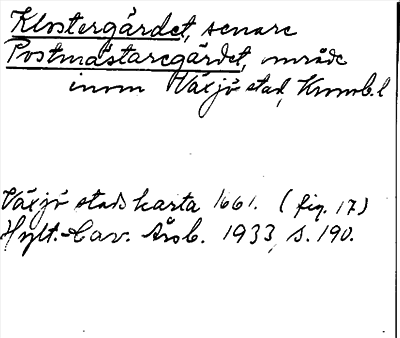 Klostergärdet, senare
Postmästaregärdet, område
inom Växjö stad, Kronob. l
Växjö stads karta 1661. (fig. 17)
Hylt.-Cav. Årsb. 1933, s. 190.